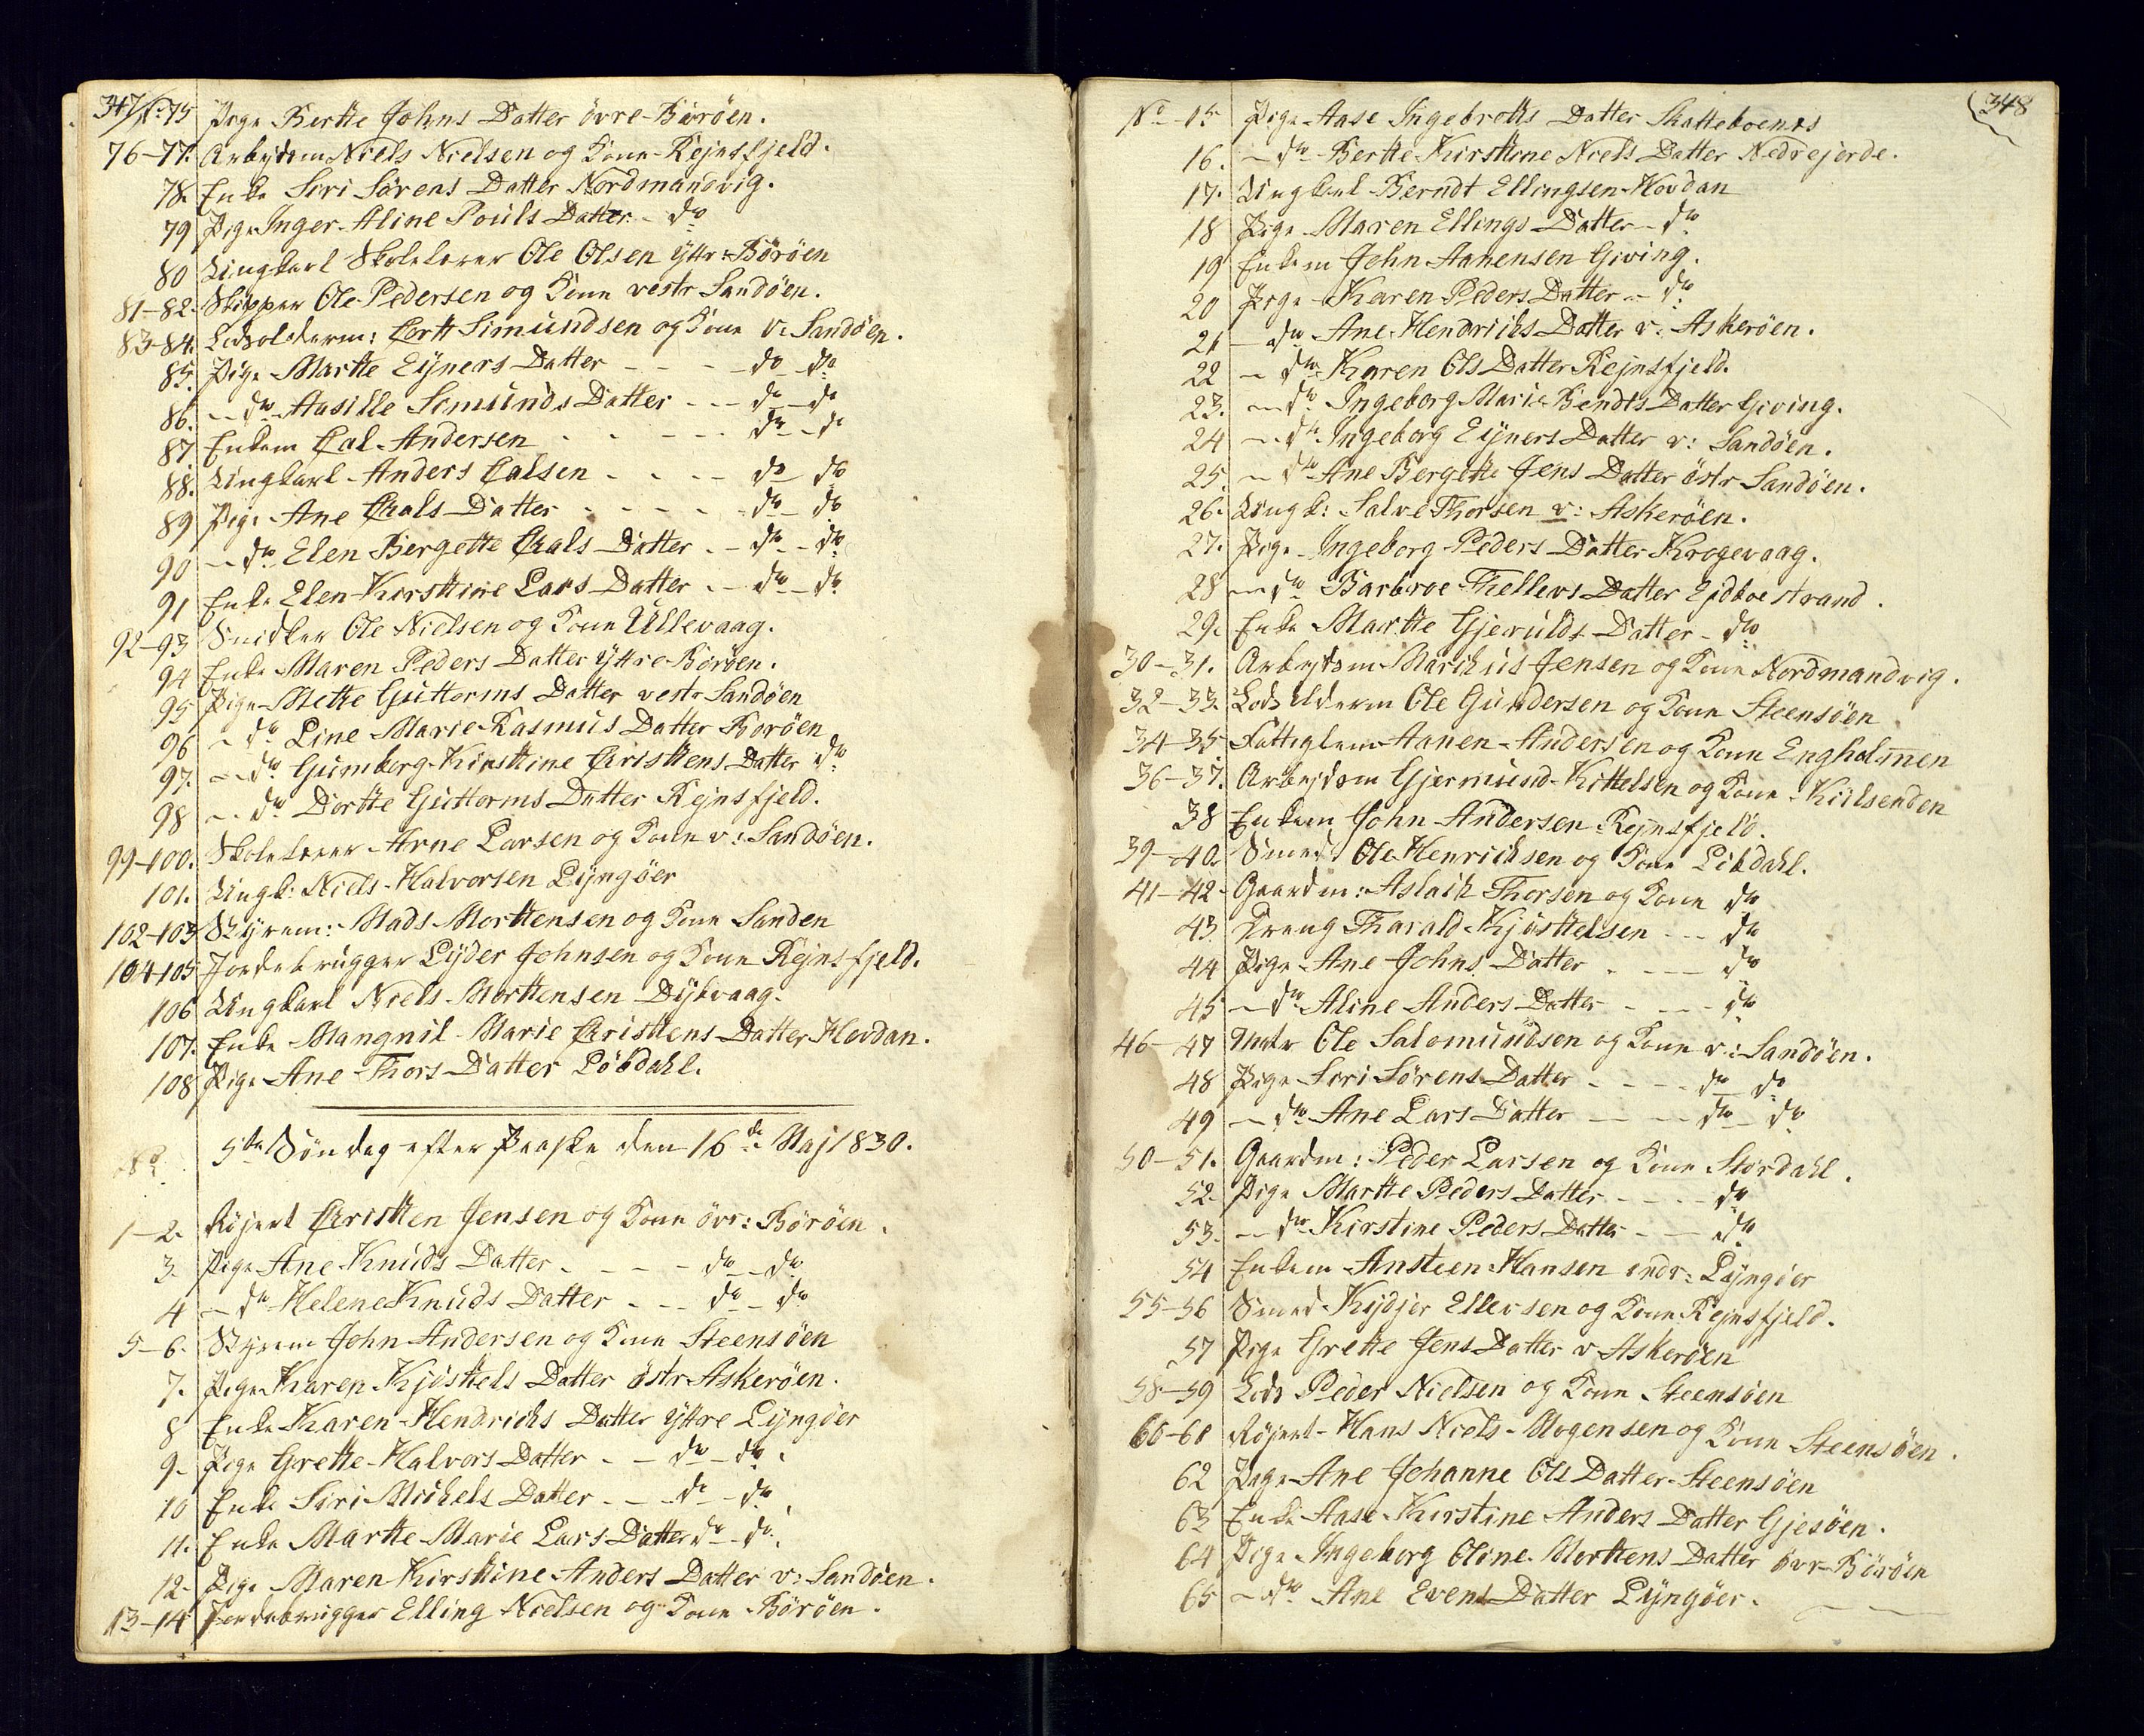 347/ No 75 Pige Bertte Johns Datter övre Börøen.
76-77. Arbejdsm Niels Nielsen og Kone Rejnsfjeld.
78. Enke Siri Sörens Datter Nordmandvig.
79 Pige Inger Aline Pouls Datter - do
80 Ungkarl Skolelerer Ole Olsen yttr: Börøen
81-82. Skipper Ole Pedersen og Kone vestr Sandöen.
83-84. Lodsolderm: Cortt Simundsen og Kone v: Sandöen.
85. Pige Martte Eyners Datter - - - - do do
86. - do Aasille Simunds Datter - - - do - do
87 Enkem Cal Andersen - - - - do - do
88. Ungkarl Anders Calsen - - - - do do
89 Pige Ane Chals Datter - - - - do - do
90 - do Elen Bergette Chals Datter - - do - do
91 Enke Elen Kirsttine Lars Datter - - do - do
92-93 Snidker Ole Nielsen og Kone Ullevaag.
94 Enke Maren Peders Datter yttre Börøen.
95 Pige Mette Guttorms Datter vestr Sandöen
96 - do Line Marie Rasmus Datter Borøen
97. - do Gumborg Kirsttine Christtens Datter do
98 - do Dortte Guttorms Datter Rejnsfjeld.
99-100. Skolelerer Arne Larsen og Kone v: Sandöen.
101. Ungk: Niels Halvorsen Lyngöer
102-103 Styrem: Mads Morttensen og Kone Sanden
104-105 Jordebrugger Lyder Johnsen og Kone Rejnsfjeld.
106 Ungkarl Niels Morttensen Dybvaag.
107. Enke Mangnil Marie Christtens Datter Hovdan.
108 Pige Ane Thors Datter Löbdahl.
No 5te Söndag efter Paaske den 16de Maj 1830.
1-2. Röjert Christten Jensen og Kone övr: Börøen.
3. Pige Ane Knuds Datter - - - - do - do
4 - do Helene Knuds Datter - - - do - do
5-6. Styrem John Andersen og Kone Steensöen
7. Pige Karen Kjösttels Datter östr Askeröen.
8 Enke Karen Hendrichs Datter yttre Lyngöer
9. Pige Grette Halvors Datter - - do - do.
10 Enke Siri Michels Datter - - do - do
11. Enke Martte Marie Lars Datter do - do.
12. Pige Maren Kirsttine Anders Datter v: Sandöen.
13-14 Jordebrugger Elling Nielsen og Kone Börøen.
348
No 15 Pige Aase Ingebretts Datter Skatteboenes
16. - do Bertte Kirsttine Niels Datter Nedrejorde.
17. Ungkarl Berndt Ellingsen Hovdan
18 Pige Maren Ellings Datter - do
19 Enkem John Aanensen Giving.
20 Pige Karen Peders Datter - do
21 - do Ane Hendrichs Datter v: Askeröen.
22 - do Karen Ols Datter Rejnsfjeld.
23. - do Ingeborg Marie Bendts Datter Giving.
24 - do Ingeborg Eyners Datter v: Sandöen.
25. - do Ane Bergette Jens Datter östr Sandöen.
26. Ungk: Salve Thorsen v: Askeröen.
27. Pige Ingeborg Peders Datter Krogevaag.
28 - do Barbroe Thellevs Datter Ejdboestrand.
29. Enke Martte Gjerulds Datter - do
30-31. Arbejdsm Marchus Jensen og Kone Nordmandvig.
32-33. Lods Olderm Ole Gundersen og Kone Steensöen
34-35 Fattiglem Aanen Andersen og Kone Engholmen
36-37. Arbejdsm Gjermund Kittelsen og Kone Kiilsenden
38 Enkem John Andersen Rejnsfjeld.
39-40. Smed Ole Henrichsen og Kone Löbdahl.
41-42. Gaardm: Aslach Thorsen og Kone do
43. Dreng Tharald Kjösttelsen - - - do
44 Pige Ane Johns Datter - - - do
45 - do Aline Anders Datter - - - do
46-47 Matr Ole Salomundsen og Kone v: Sandöen.
48 Pige Siri Sörens Datter - - - - do do
49 - do Ane Lars Datter - - - do do
50-51. Gaardm: Peder Larsen og Kone Stordahl.
52. Pige Martte Peders Datter - - - - do
53. - do Kirstine Peders Datter - - do
54 Enkem Ansteen Hansen indr: Lyngöer
55-56 Smed Kydjer Ellevsen og Kone Rejnsfjeld.
57 Pige Grette Jens Datter v Askeröen
58-59 Lods Peder Nielsen og Kone Steensöen
60-61 Röjert Hans Niels Mogensen og Kone Steensöen.
62 Pige Ane Johanne Ols Datter Steensöen
63 Enke Aase Kirstine Anders Datter Gjesöen.
64 Pige Ingeborg Oline Morttens Datter övr Börøen
65 - do Ane Evens Datter Lyngöer.